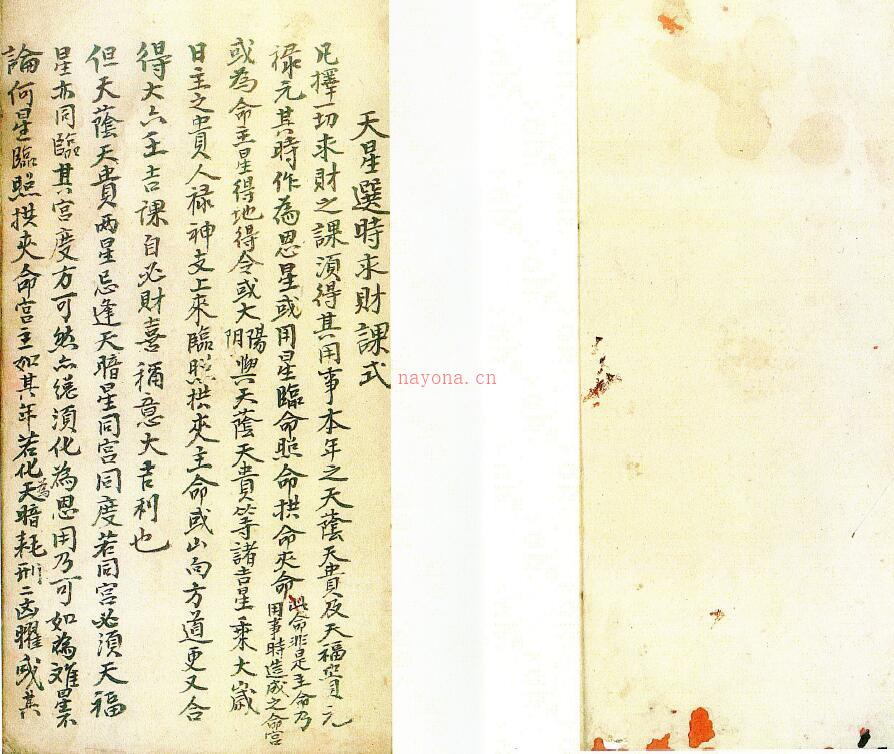 天星選時求財課式
凡擇一切求財之課須得其用事本年之天蔭天貴及天福官元
祿元其時作為恩星或用星臨命照命拱命夾命此命非是主命乃用事時造成之命宮
或為命主星得地得令或太陽太阴與天蔭天貴等諸吉星乘大歲
日主之貴人祿神支上來臨照拱夾主命或山向方道更又合
得大六壬吉課自必財喜稱意大吉利也
但天蔭天貴兩星忌逢天暗星同宮同度若同宮必須天福
星亦同臨其宮度方可然亦總須化為恩用乃可如為难星不
論何星臨照拱夾命宮主如其年若化為天暗耗刑二凶曜或其
nayona.cn